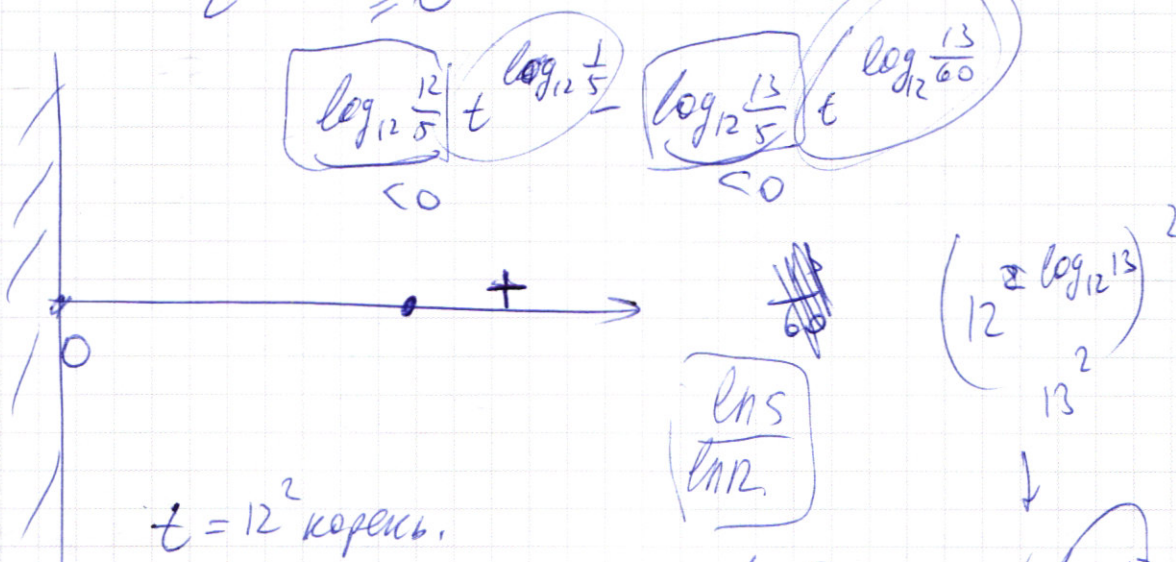 log₁₂ 12/5 t^(log₁₂ 1/5) − log₁₂ 13/5 t^(log₁₂ 13/60)
<0 <0
+
0
(12^(log₁₂ 13))²
13²
ln5/ln12
t = 12² корень.